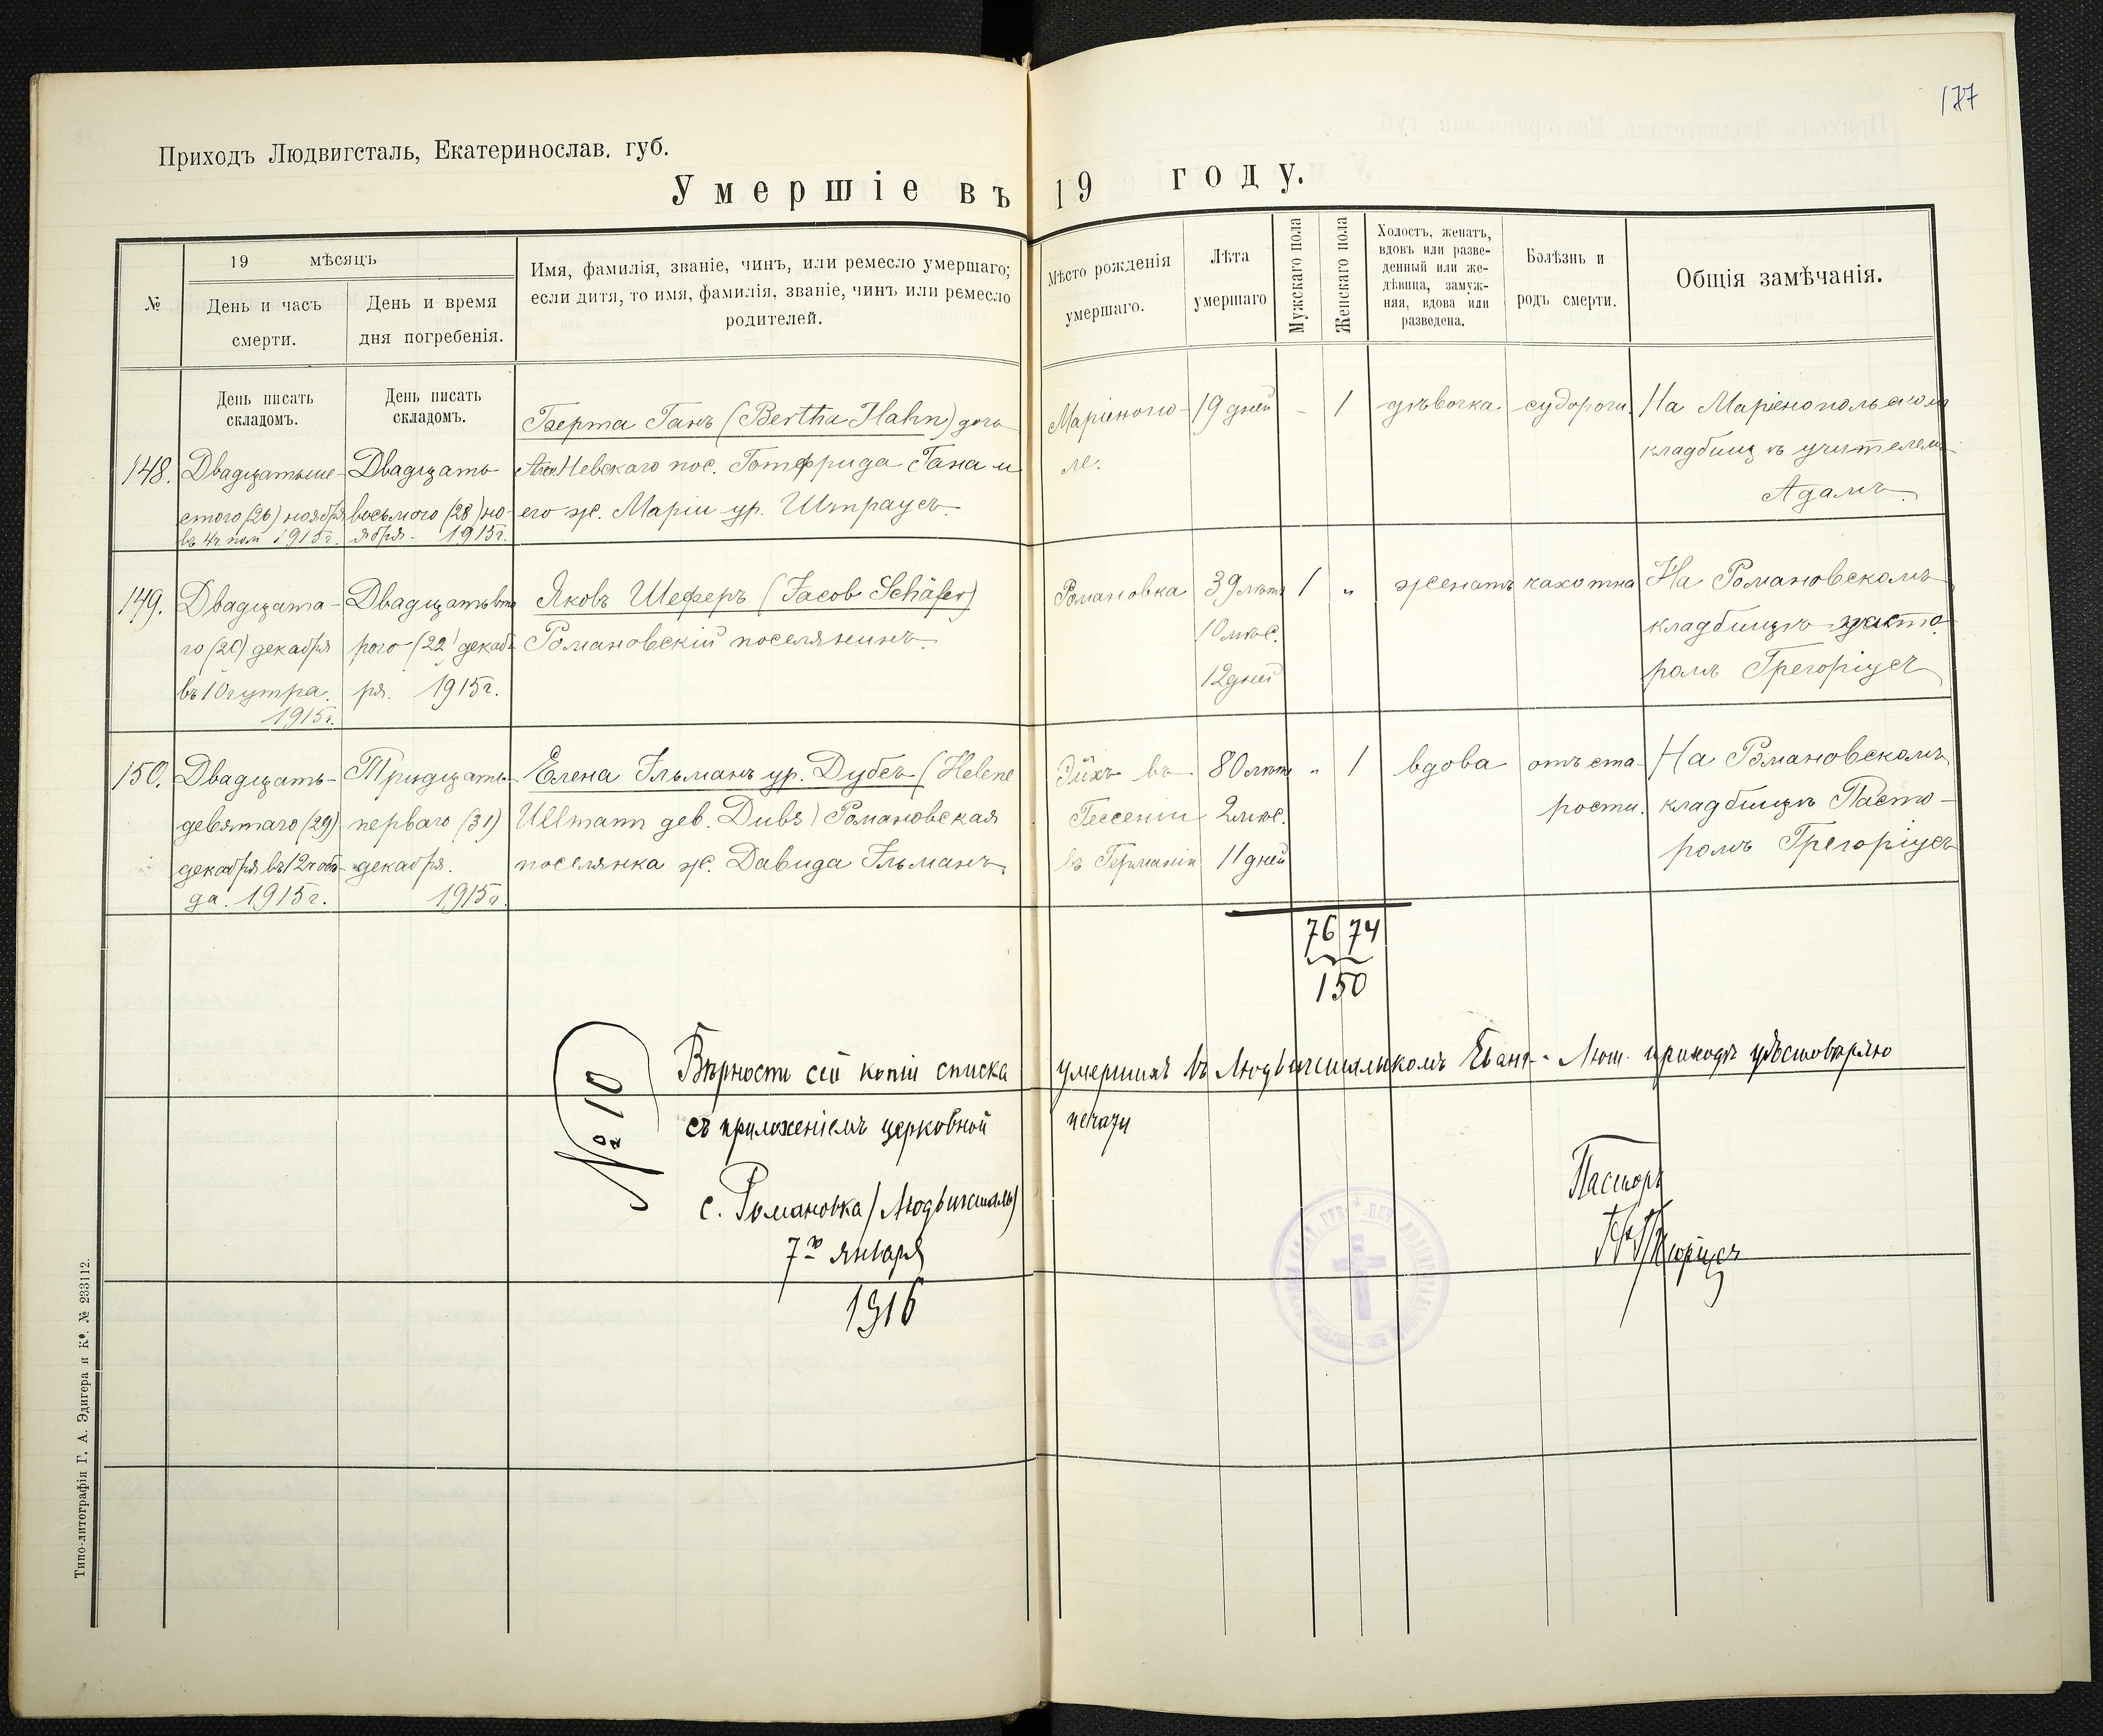 177
Приходъ Людвигсталь, Екатеринослав. губ.
Умершіе въ 19 году.
№
19 мѣсяцъ
День и часъ
смерти.
День и время
дня погребенія.
Имя, фамилія, званіе, чинъ, или ремесло умершаго;
если дитя, то имя, фамилія, званіе, чинъ или ремесло
родителей.
Мѣсто рожденія
умершаго.
Лѣта
умершаго
Мужскаго пола
Женскаго пола
Холостъ, женатъ,
вдовъ или разве-
денный или же-
дѣвица, замуж-
няя, вдова или
разведена.
Болѣзнь и
родъ смерти.
Общія замѣчанія.
День писать
складомъ.
День писать
складомъ.
148.
Двадцатьше-
стого (26) ноября
въ 4ч. 1915г.
Двадцать
восьмого (28) но-
ября. 1915г.
Берта Ганъ (Bertha Hahn) дочь
Невскаго пос. Готфрида Гана и
его ж. Маріи ур. Штраусъ.
Маріуполе-
ле.
19 дней
-
1
дѣвочка
судороги.
На Маріупольском
кладбищѣ учителемъ
Адамъ.
149.
Двадцата-
го (20) декабря
въ 10ч утра.
1915г.
Двадцатьвто
рого (22) декаб-
ря. 1915г.
Яковъ Шеферъ (Jacob Schäfer)
Романовскій поселянинъ.
Романовка
39 лѣтъ
10 мѣс.
12 дней
1
"
женатъ
чахотка
На Романовскомъ
кладбищѣ пасто
ромъ Грегоріусъ
150.
Двадцать-
девятаго (29)
декабря въ 12ч обѣ-
да. 1915г.
Тридцать-
перваго (31)
декабря.
1915г.
Елена Ульманъ ур. Дубсъ (Helene
Ullmann дев. Dubs) Романовская
поселянка ж. Давида Ульманъ.
въ
Гессеніи
въ Германіи
80 лѣтъ
2 мѣс.
11 дней
"
1
вдова
отъ ста-
рости.
На Романовскомъ
кладбищѣ Пасто-
ромъ Грегоріусъ
76 74
150
№ 10
Вѣрность сей копіи списка умершихъ въ Людвигстальскомъ Еванг.- Лют. приходѣ удостовѣряю
съ приложеніемъ церковной печати
с. Романовка (Людвигсталь)
7го января
1916
Пасторъ
Грегоріусъ
Типо-литографія Г. А. Эдигера и К⁰. № 233112.